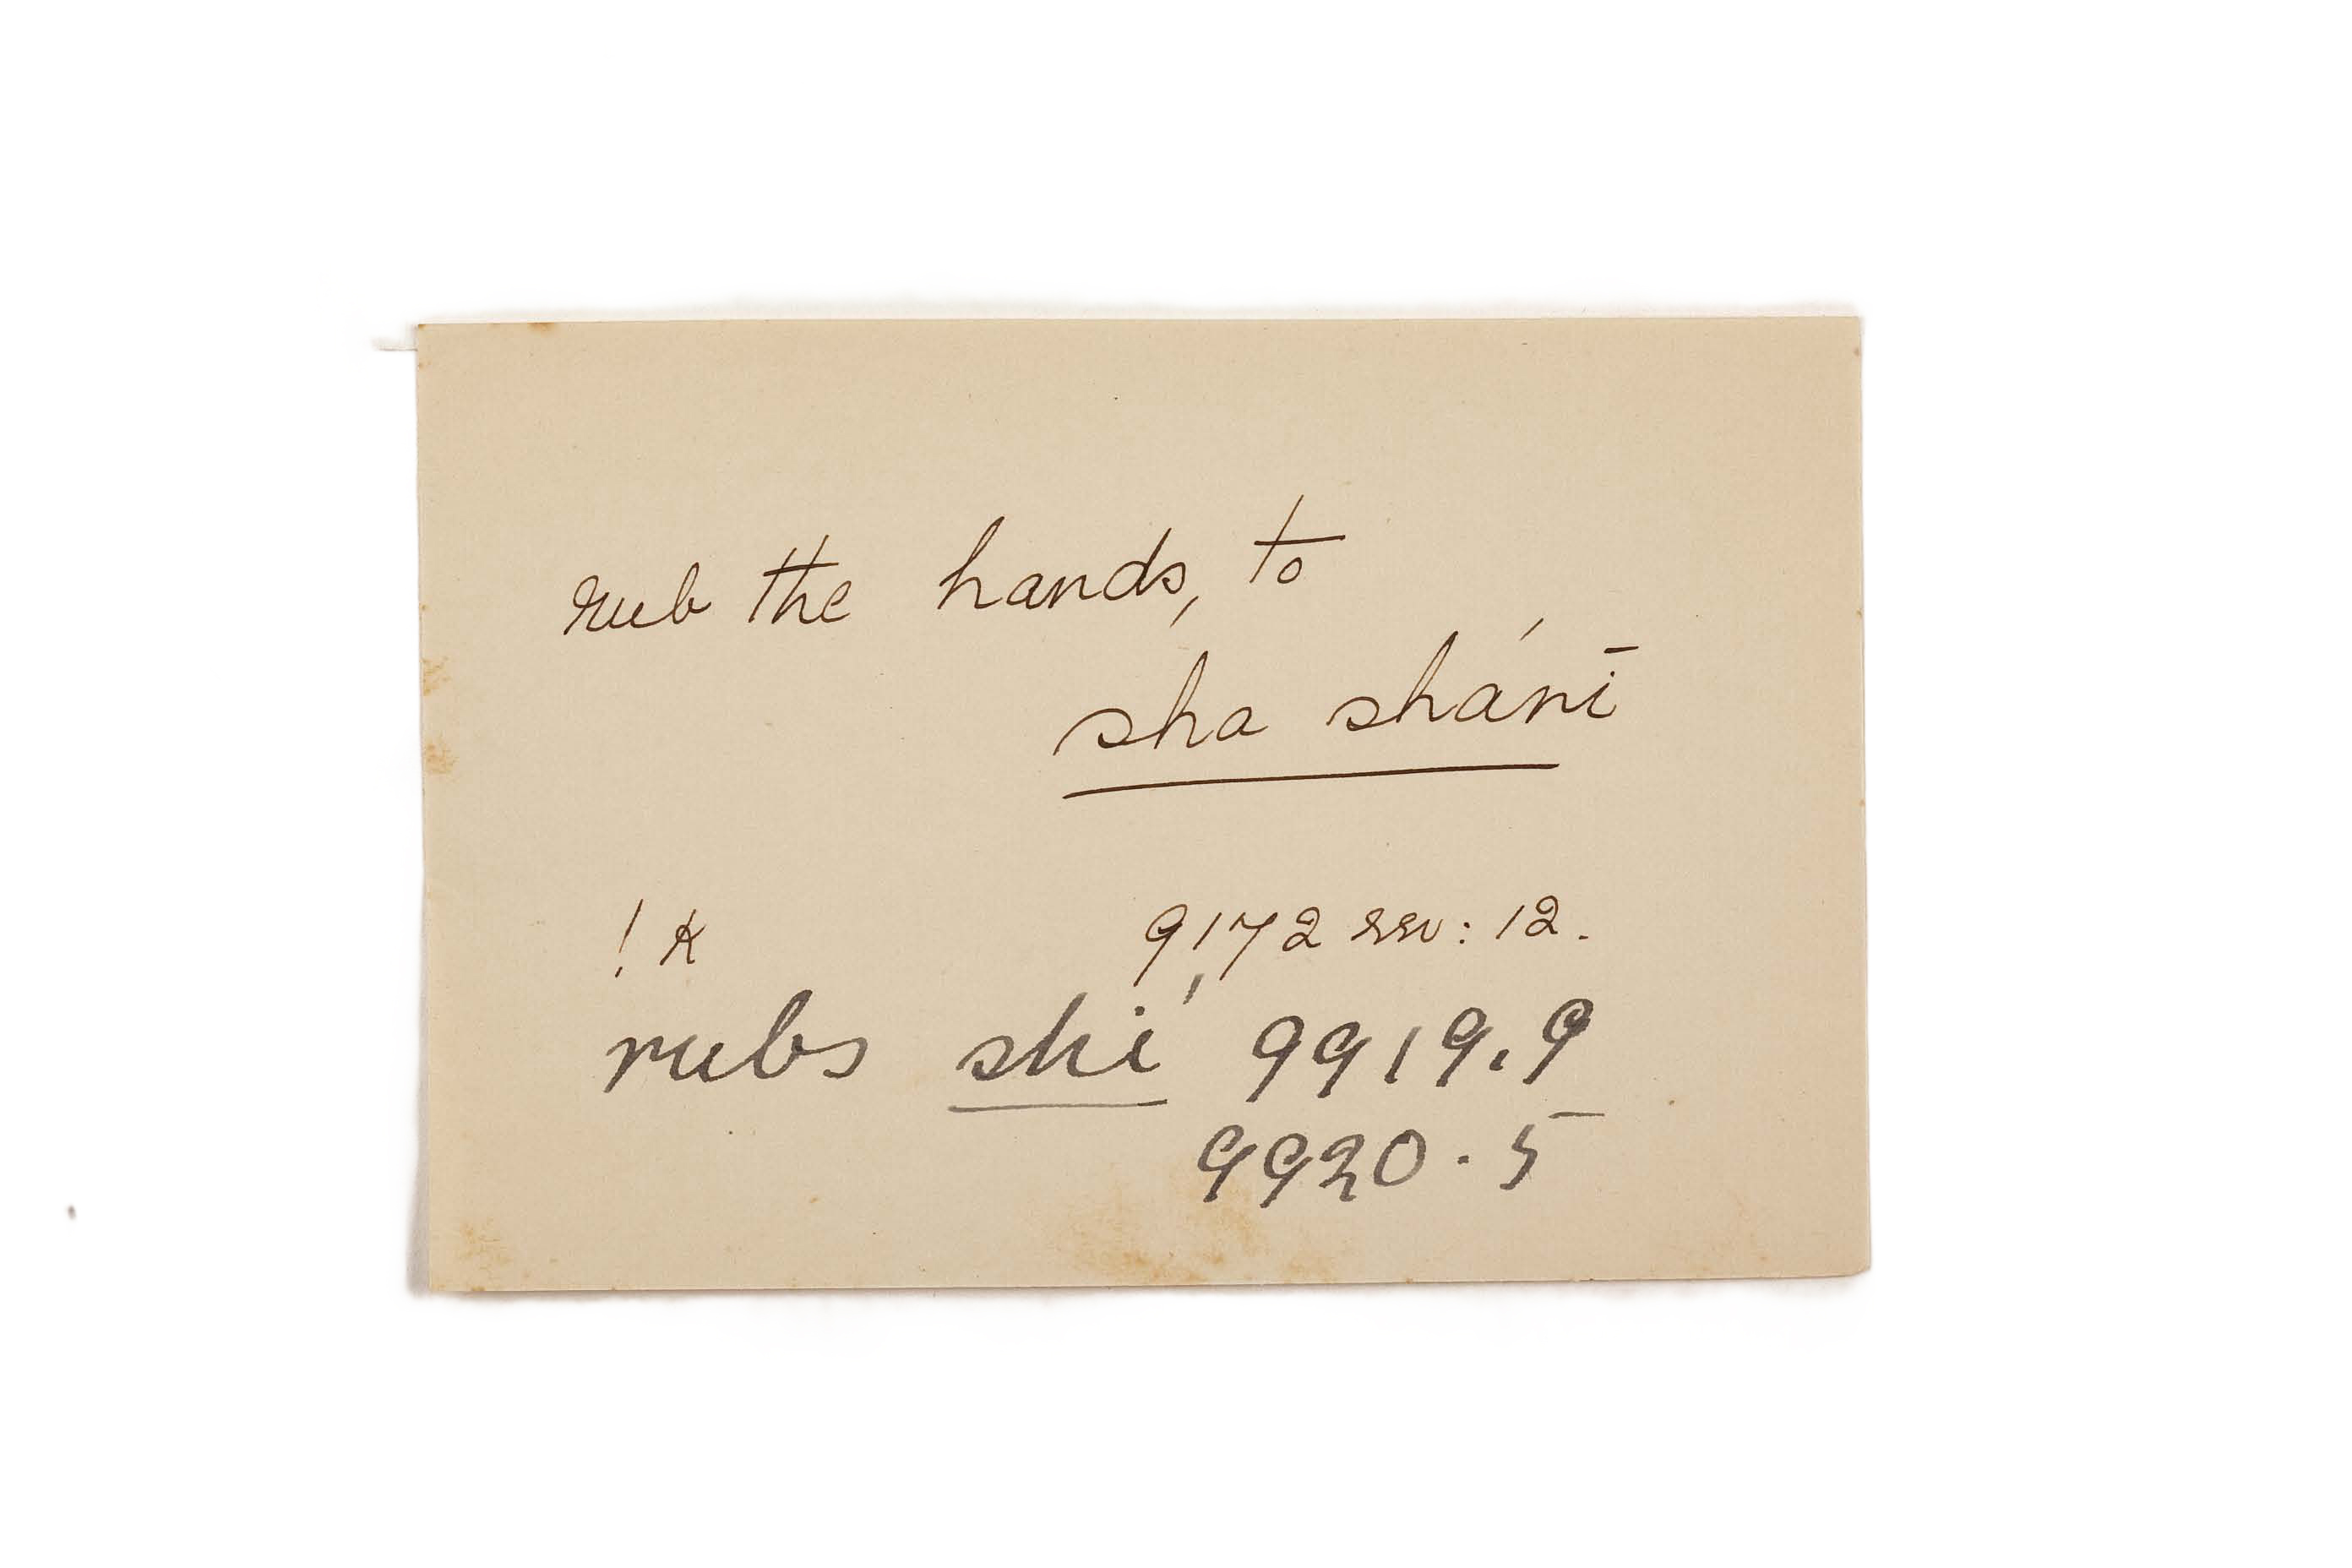 rub the hands, to
sha sháni̅
! k 9172 rev: 12.
rubs shí 9919.9
9920.5